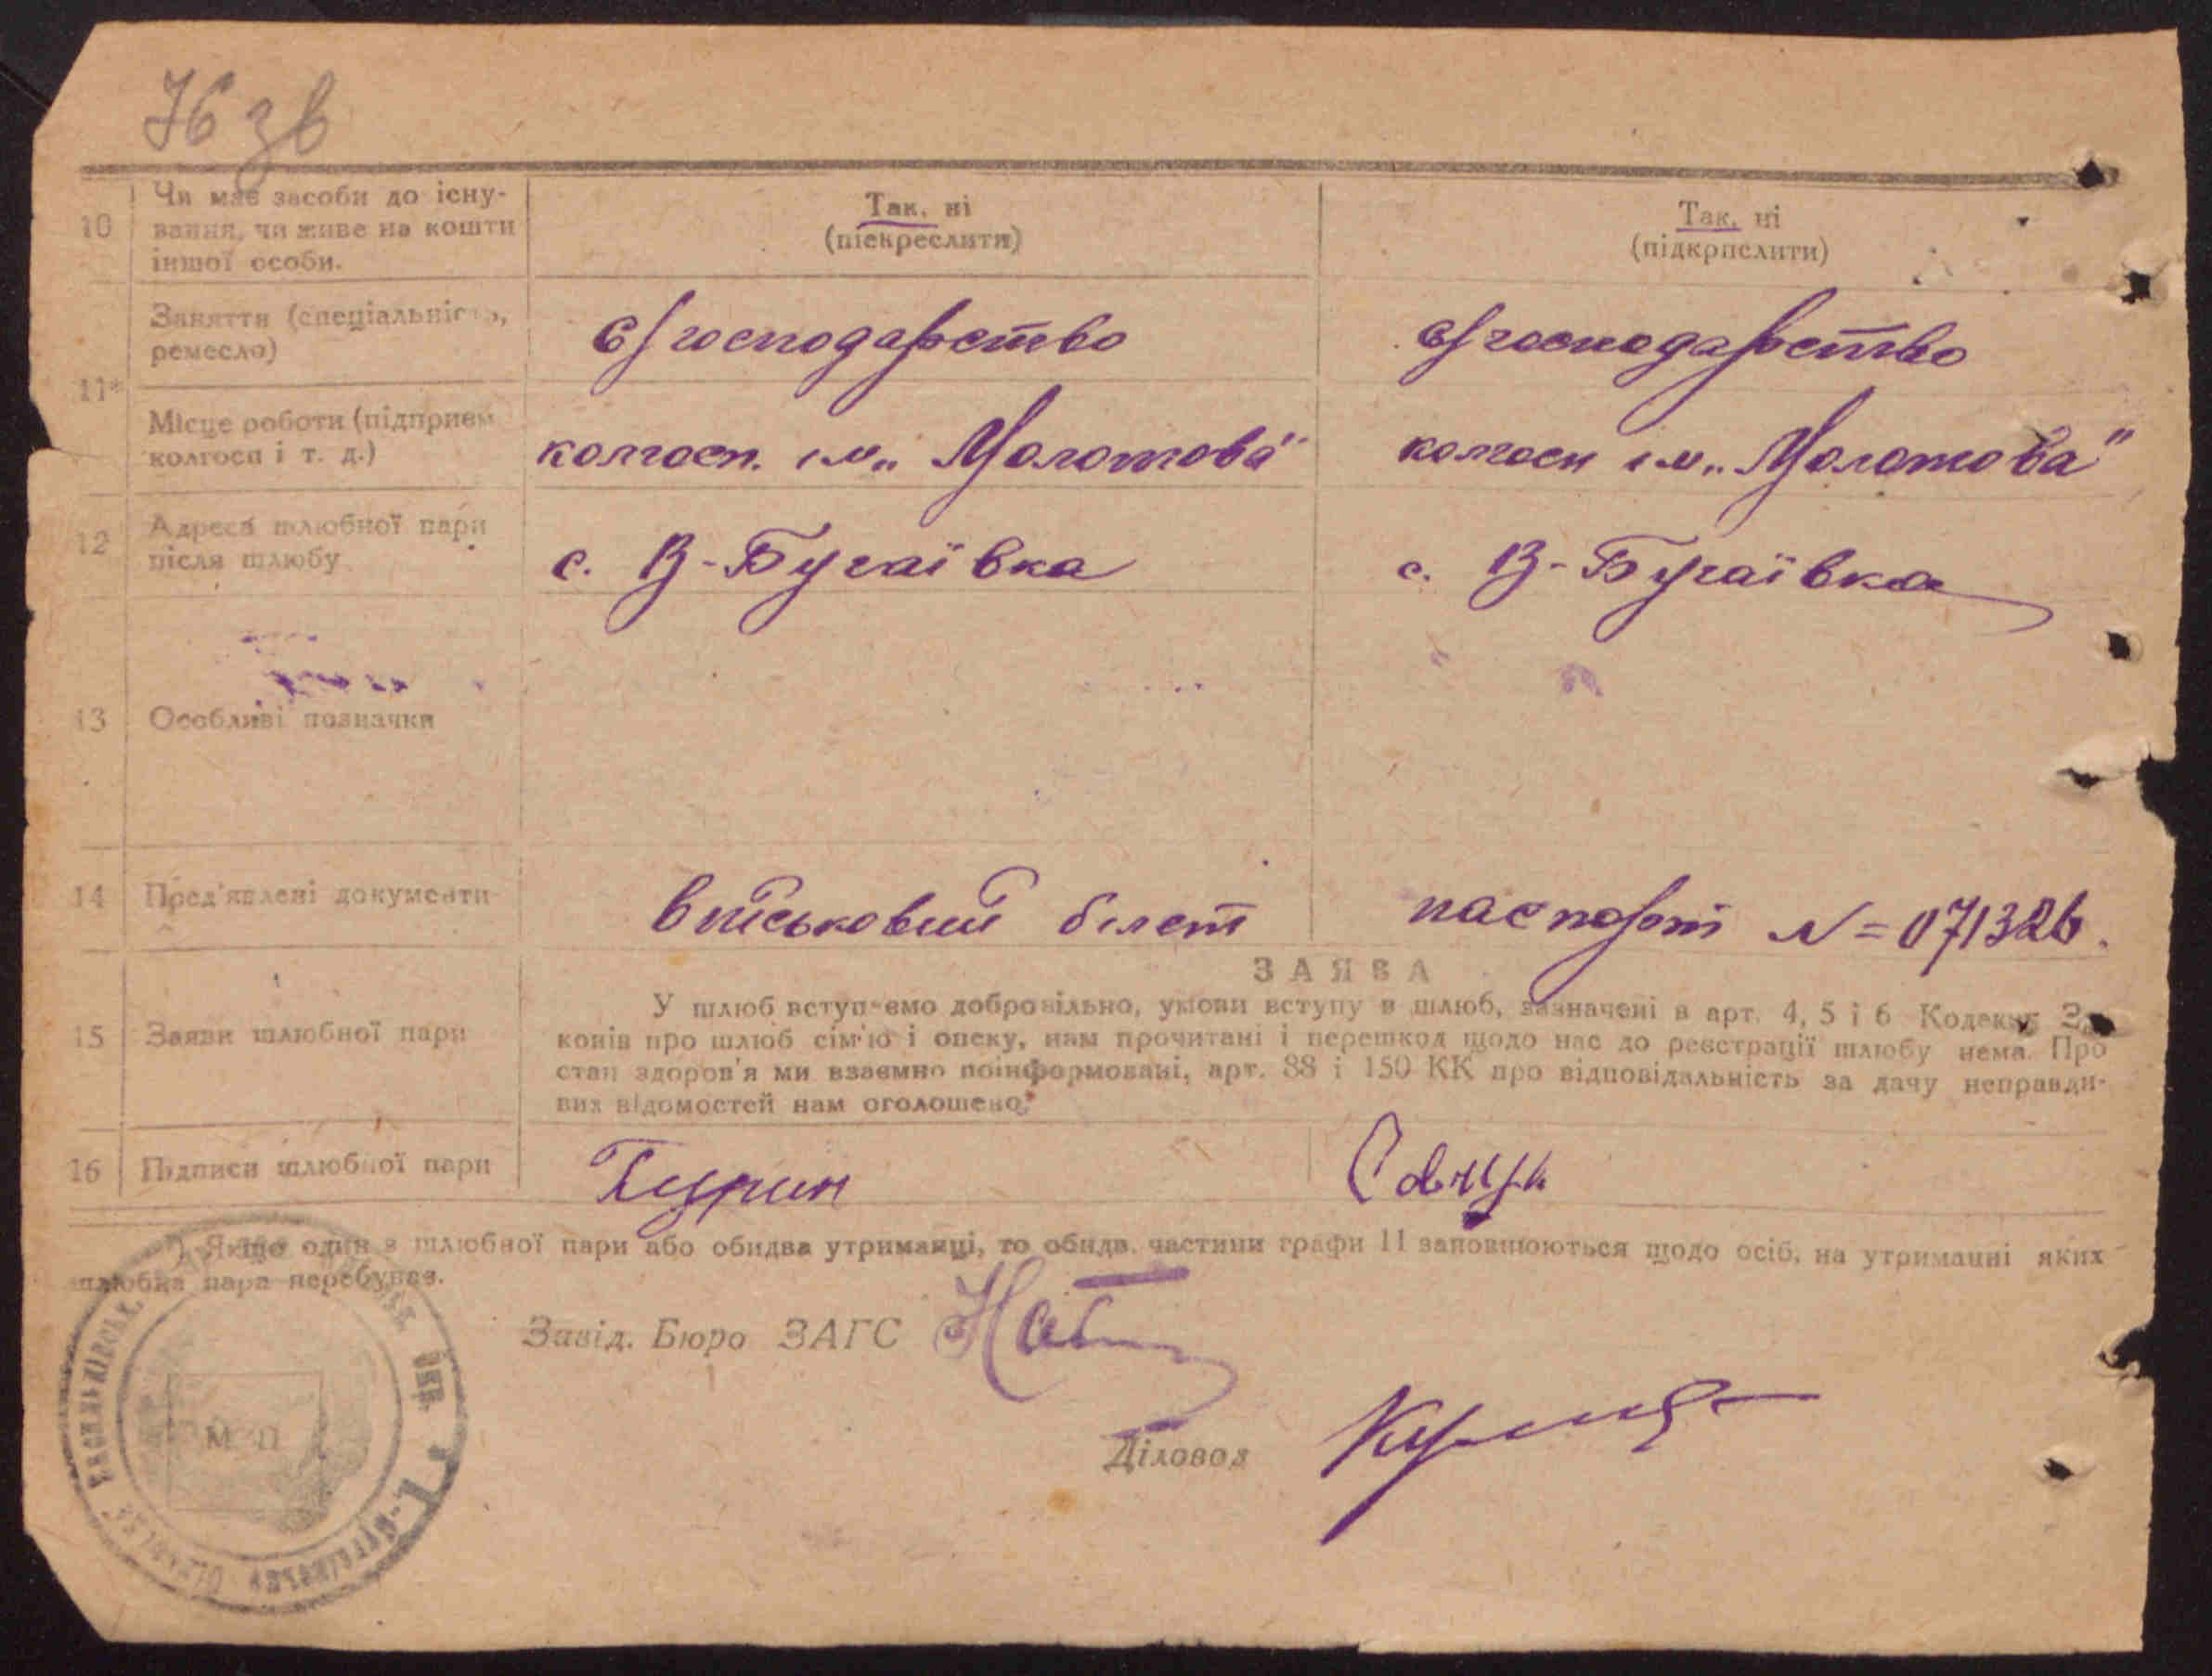 76 зв
10
Чи має засоби до існу-
вання, чи живе на кошти
іншої особи.
Так, ні
(піскреслити)
Так, ні
(підкрпслити)
11*
Заняття (спеціальність,
ремесло)
с/господарство
с/господарство
Місце роботи (підприєм
колгосп і т. д.)
колгосп. ім „Молотова"
колгосп ім „Молотова"
12
Адреса шлюбної пари
після шлюбу
с. В-Бугаївка
с. В-Бугаївка
13
Особливі позначки
14
Пред'явлені документи
військовий білет
паспорт N=071326.
15
Заяви шлюбної пари
ЗАЯВА
У шлюб вступаємо добровільно, умови вступу в шлюб, зазначені в арт. 4, 5 і 6 Кодексу За
конів про шлюб сім'ю і опеку, нам прочитані і перешкод щодо нас до реєстрації шлюбу нема. Про
стан здоров'я ми взаємно поінформовані, арт. 88 і 150 КК про відповідальність за дачу неправди-
вих відомостей нам оголошено.
16
Підписи шлюбної пари
Гурин
*) Якщо один з шлюбної пари або обидва утриманці, то обидв. частини графи 11 заповнюються щодо осіб, на утриманні яких
шлюбна пара перебуває.
Завід. Бюро ЗАГС
Діловод
М П